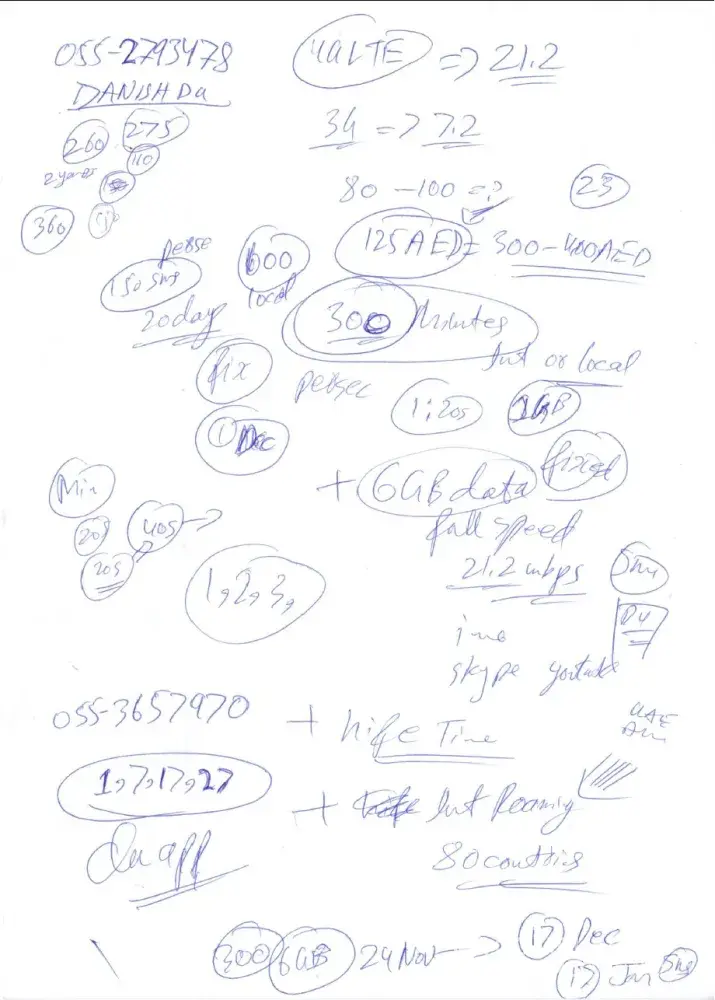 055-2793478
DANISH Du
4G LTE => 21.2
260 275
34 => 7.2
110
80 - 100 => 23
360
125 AED = 300-400AED
persec
600
local
20 days
300 Minutes
Int or local
fix
persec
1:20s 1GB
1 Dec
Min
+ 6GB data fixed
20s 40s ->
full speed
20s
21.2 mbps
1,2,3,
Du
imo
skype youtube
055-3657970
+ Life Time
UAE
1,7,17,27
+ Int Roaming
Du app
80 countries
300 6GB 24 Nov -> 17 Dec
17 Jan